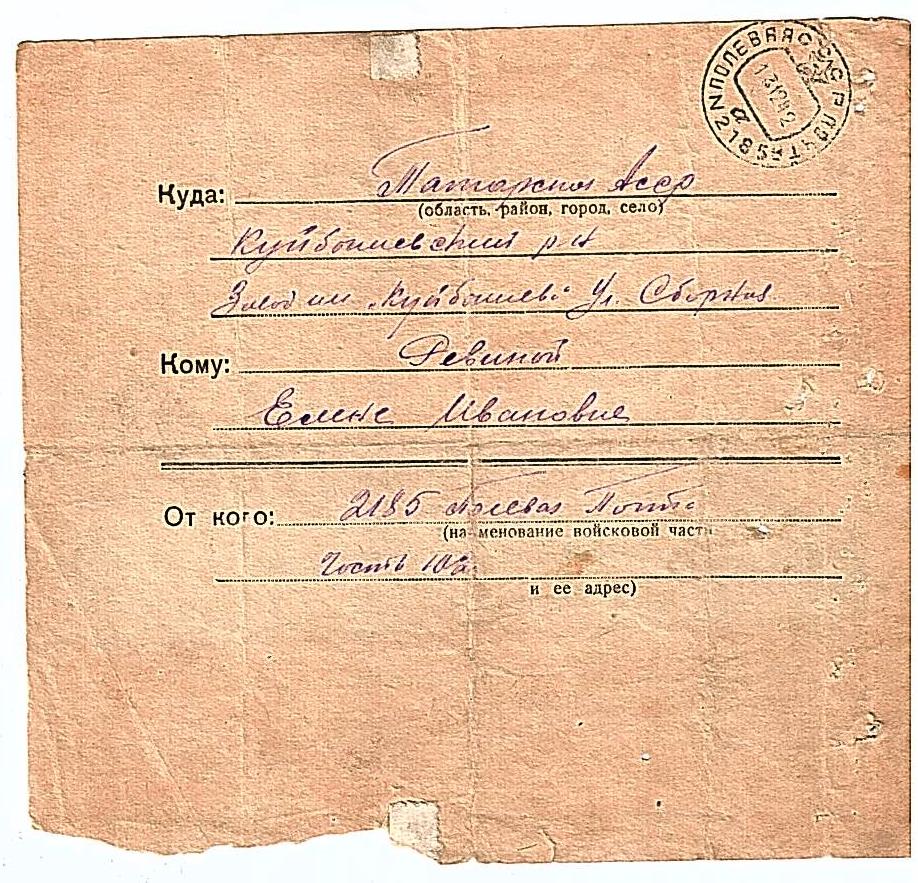 СССР ПОЛЕВАЯ ПОЧТА N 2185
13 12 42
а
Куда: Татарская Асср
(область, район, город, село)
Куйбышевский р-н
Завод им "Куйбышева" Ул. Сборная
Кому: Ревиной
Елене Ивановне
От кого: 2185 Полевая Почта
(на менование войсковой част
Часть 102
и ее адрес)